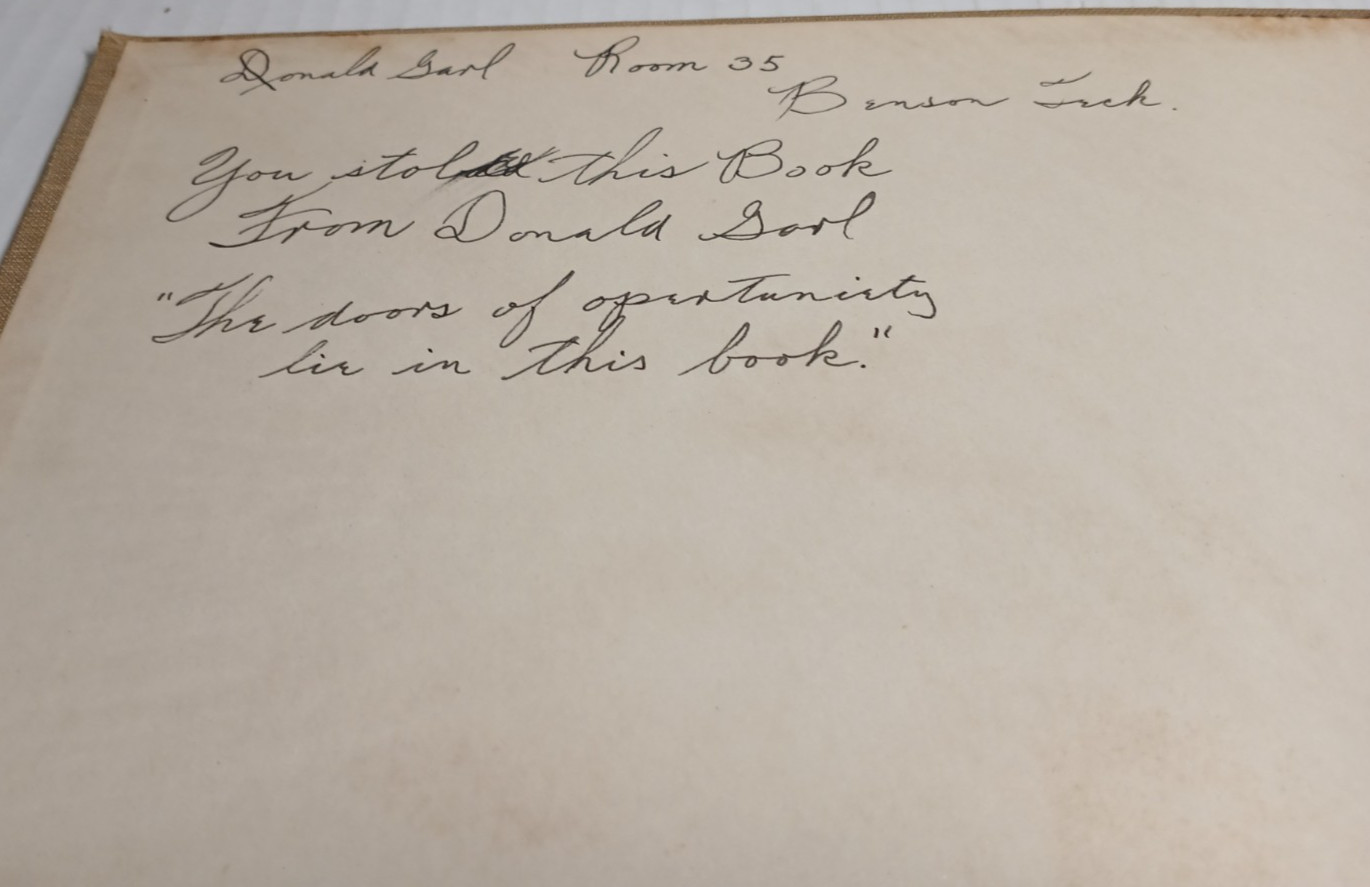 Donald Garl Room 35
Benson Tech.
You stole this Book
From Donald Garl
"The doors of opertuniety
lie in this book."